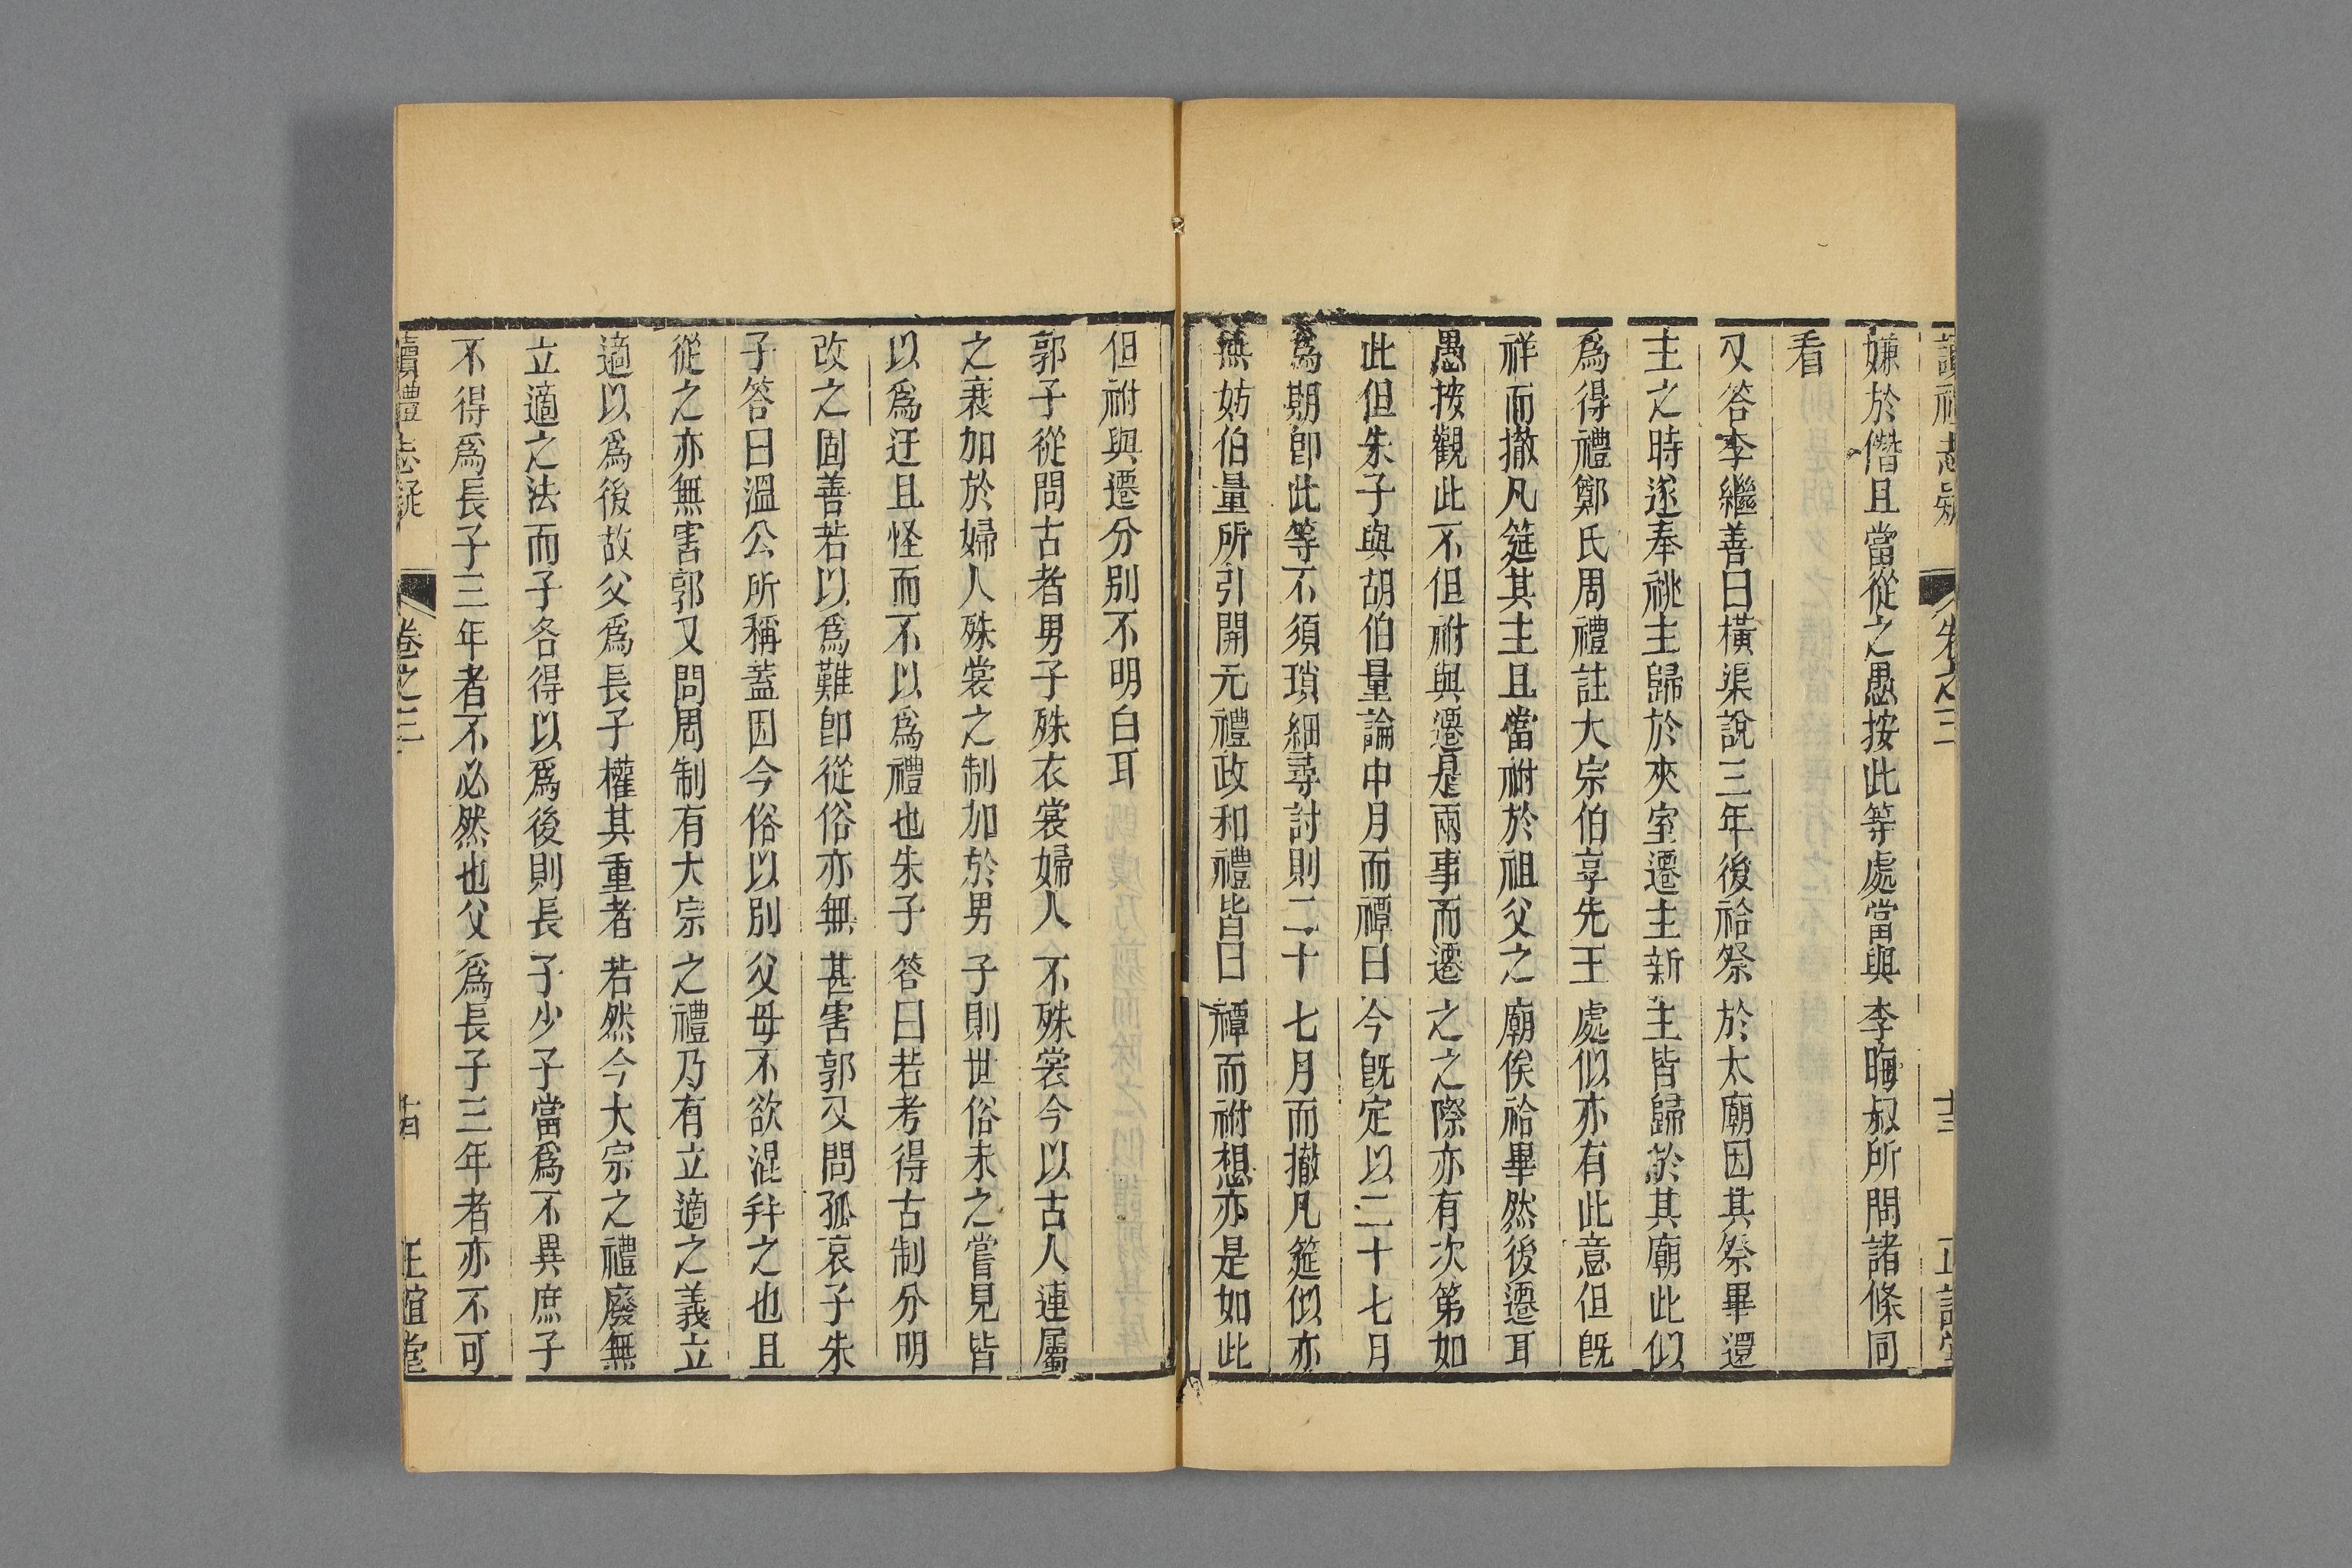 讀禮志疑 卷之三 十三 正誼堂
嫌於僭且當從之愚按此等處當與李晦叔所問諸條同
看
又答李繼善曰橫渠說三年後祫祭於太廟因其祭畢還
主之時遂奉祧主歸於夾室遷主新主皆歸於其廟此似
爲得禮鄭氏周禮註大宗伯享先王處似亦有此意但旣
祥而撤凡筵其主且當祔於祖父之廟俟祫畢然後遷耳
愚按觀此不但祔與遷是兩事而遷之之際亦有次第如
此但朱子與胡伯量論中月而禫曰今旣定以二十七月
爲期卽此等不須瑣細尋討則二十七月而撤凡筵似亦
無妨伯量所引開元禮政和禮皆曰禫而祔想亦是如此
但祔與遷分別不明白耳
郭子從問古者男子殊衣裳婦人不殊裳今以古人連屬
之衰加於婦人殊裳之制加於男子則世俗未之嘗見皆
以爲迂且怪而不以爲禮也朱子答曰若考得古制分明
改之固善若以爲難卽從俗亦無甚害郭又問孤哀子朱
子答曰溫公所稱蓋因今俗以別父母不欲混幷之也且
從之亦無害郭又問周制有大宗之禮乃有立適之義立
適以爲後故父爲長子權其重者若然今大宗之禮廢無
立適之法而子各得以爲後則長子少子當爲不異庶子
不得爲長子三年者不必然也父爲長子三年者亦不可
讀禮志疑 卷之三 十四 正誼堂